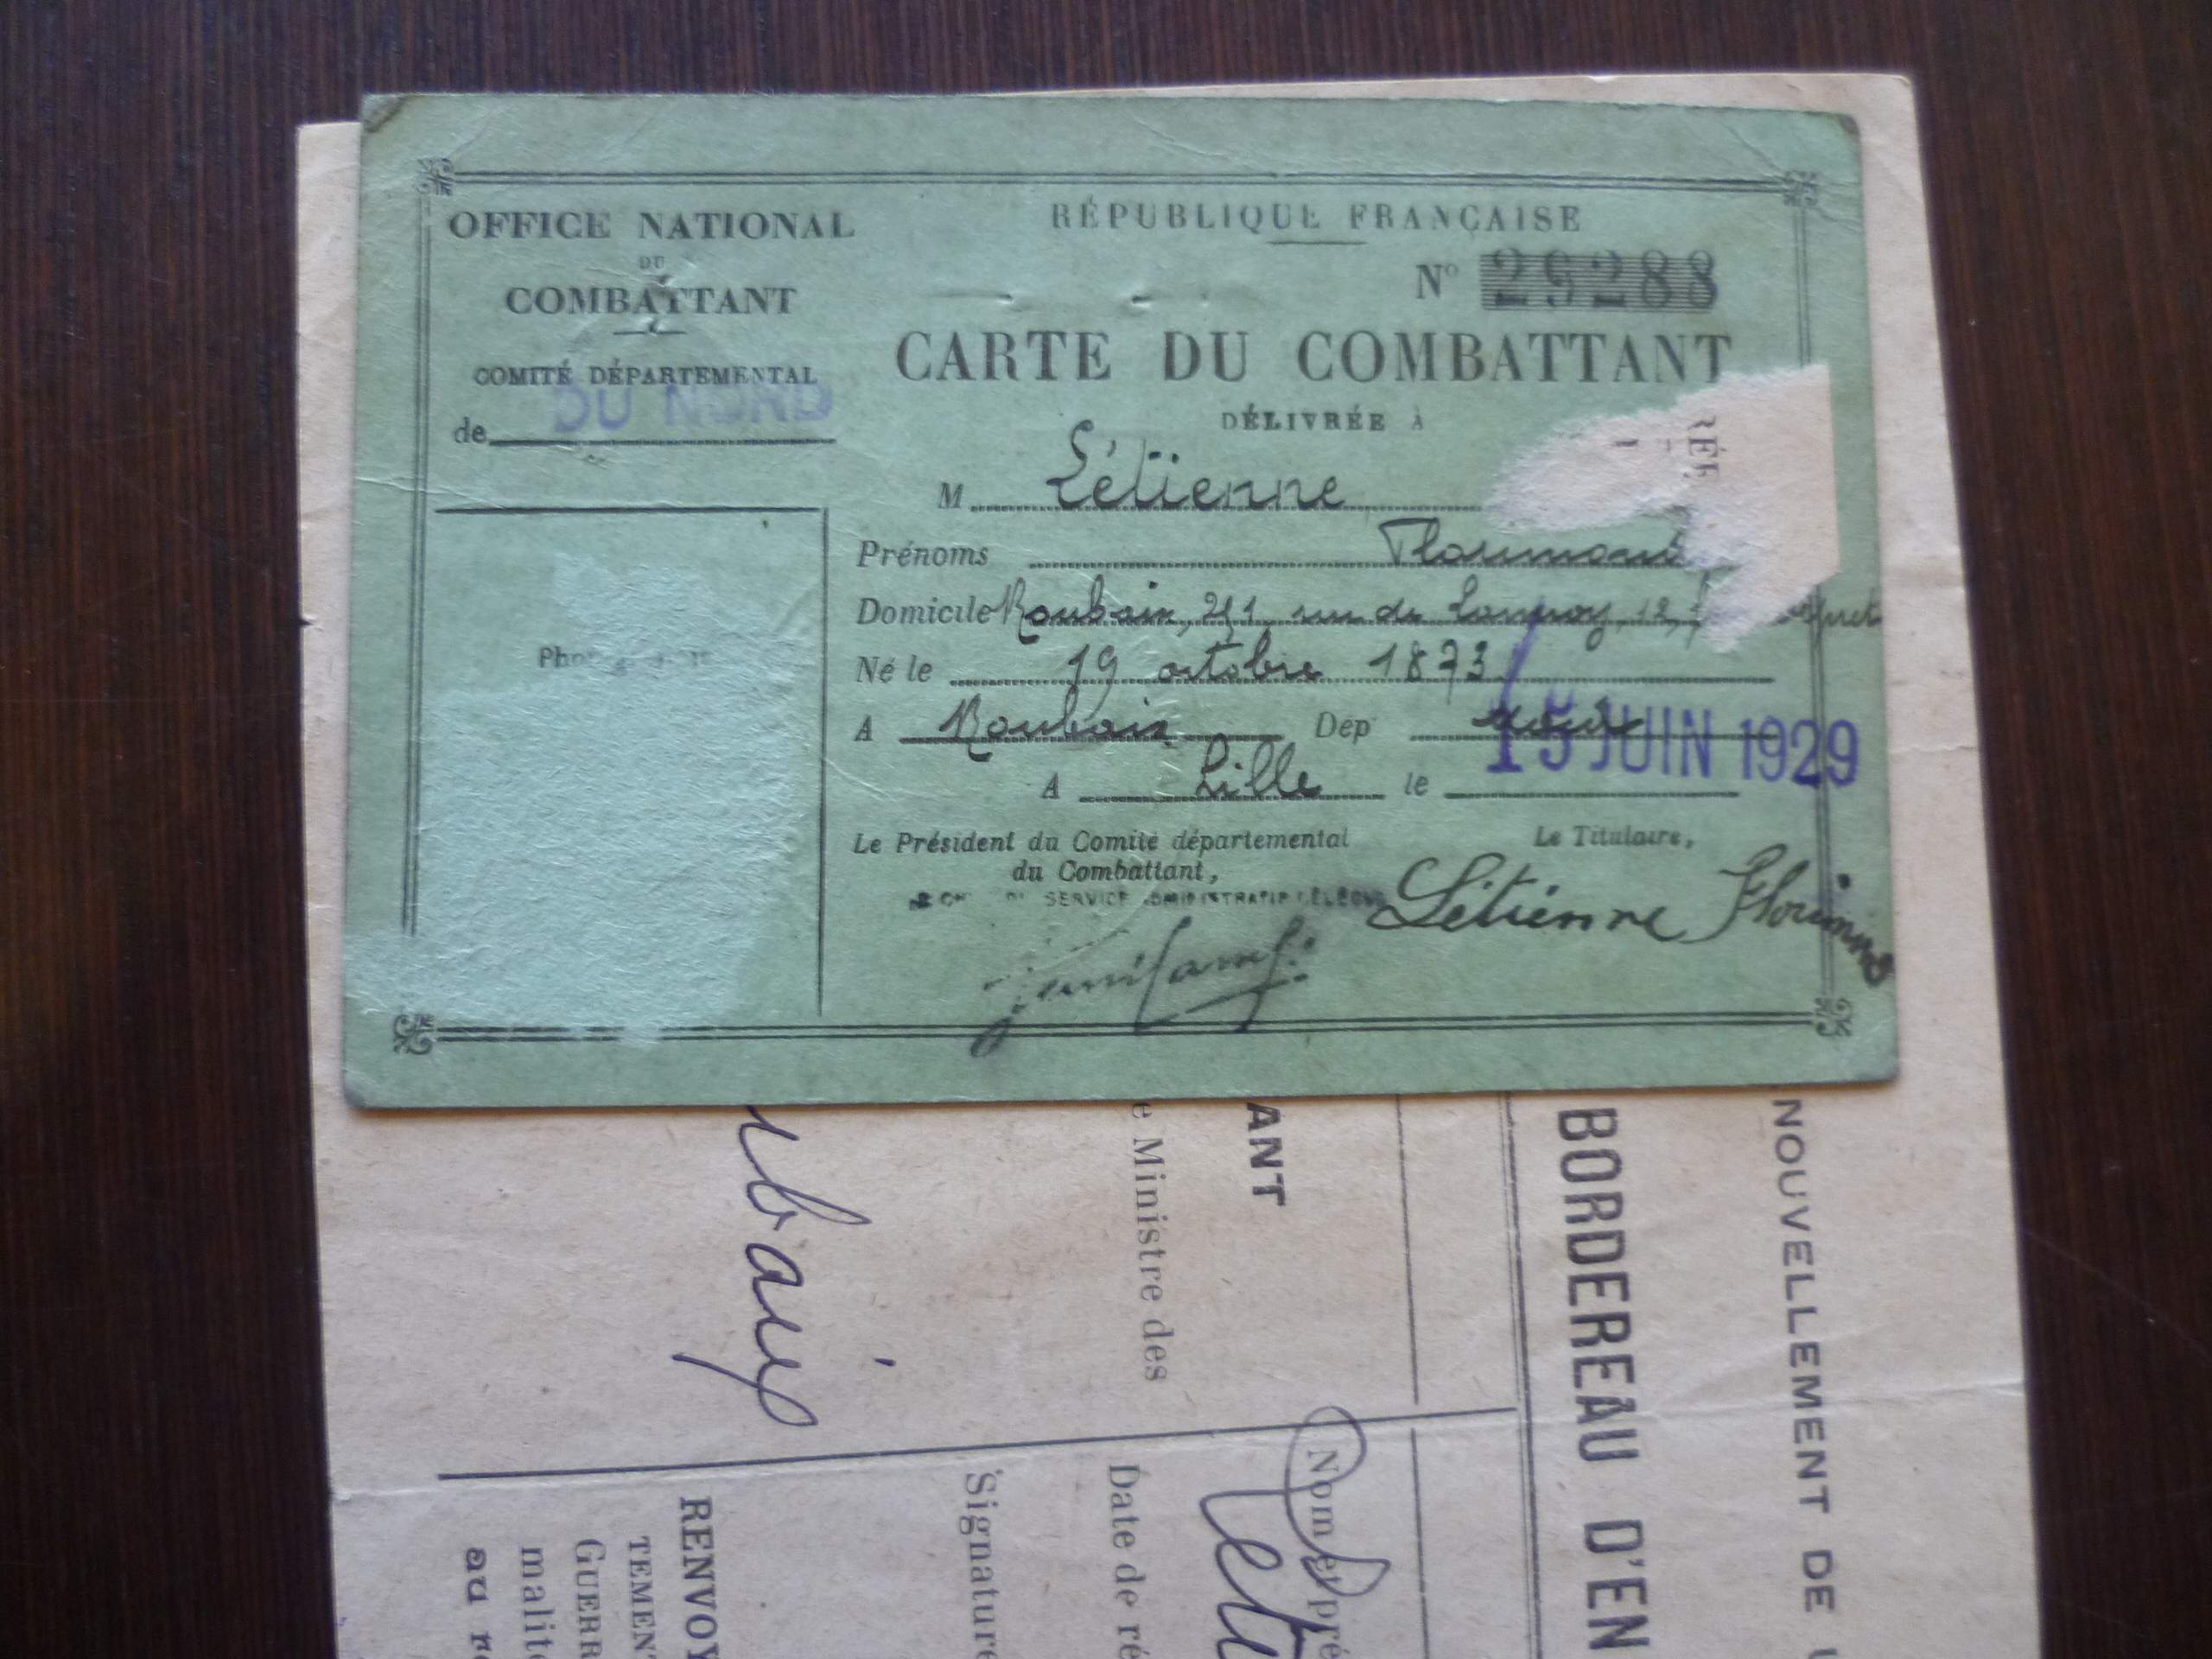 OFFICE NATIONAL
DU
COMBATTANT
COMITÉ DÉPARTEMENTAL
de DU NORD
RÉPUBLIQUE FRANÇAISE
N° 29288
CARTE DU COMBATTANT
DÉLIVRÉE À
RÉE
M. Létienne
Prénoms
Domicile Roubaix, 241, rue de Lannoy, 12,
Né le 19 octobre 1873
A Roubaix Dép
A Lille le 15 JUIN 1929
Le Président du Comité départemental
du Combattant,
SERVICE ADMINISTRATIF
Le Titulaire,
Létienne
NOUVELLEMENT DE
BORDEREAU D'EN
ANT
e Ministre des
ubaix
Nom et pré
Date de ré
Signature
RENVOY
TEMEN
GUERR
malit
au